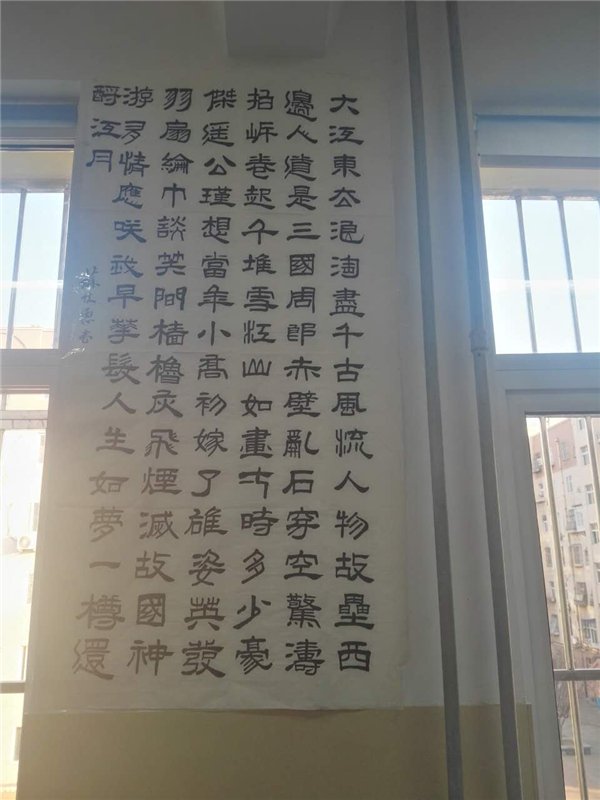 大江東去浪淘盡千古風流人物故壘西
邊人道是三國周郎赤壁亂石穿空驚濤
拍岍卷起千堆雪江山如畫時多少豪
傑遥公瑾想當年小喬初嫁了雄姿英發
羽扇綸巾談笑間檣櫓灰飛煙滅故國神
游多情應咲我早華髮人生如夢一樽還
酹江月